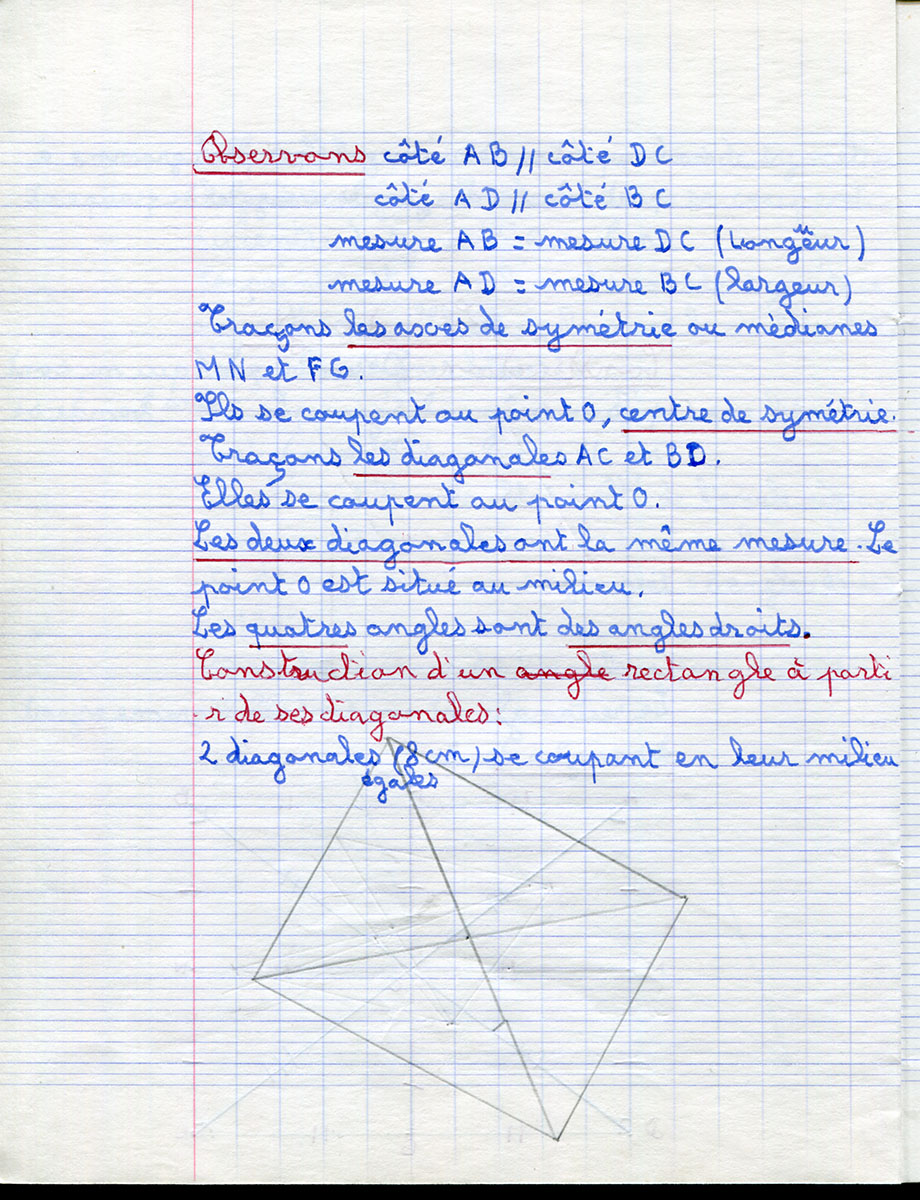 Observons côté AB // côté DC
côté AD // côté BC
mesure AB = mesure DC (Longueur)
mesure AD = mesure BC (largeur)
Traçons les axes de symétrie ou médianes
MN et FG.
Ils se coupent au point O, centre de symétrie.
Traçons les diagonales AC et BD.
Elles se coupent au point O.
Les deux diagonales ont la même mesure. Le
point O est situé au milieu.
Les quatres angles sont des angles droits.
Construction d'un angle rectangle à parti
r de ses diagonales :
2 diagonales (8cm) se coupant en leur milieu
égales